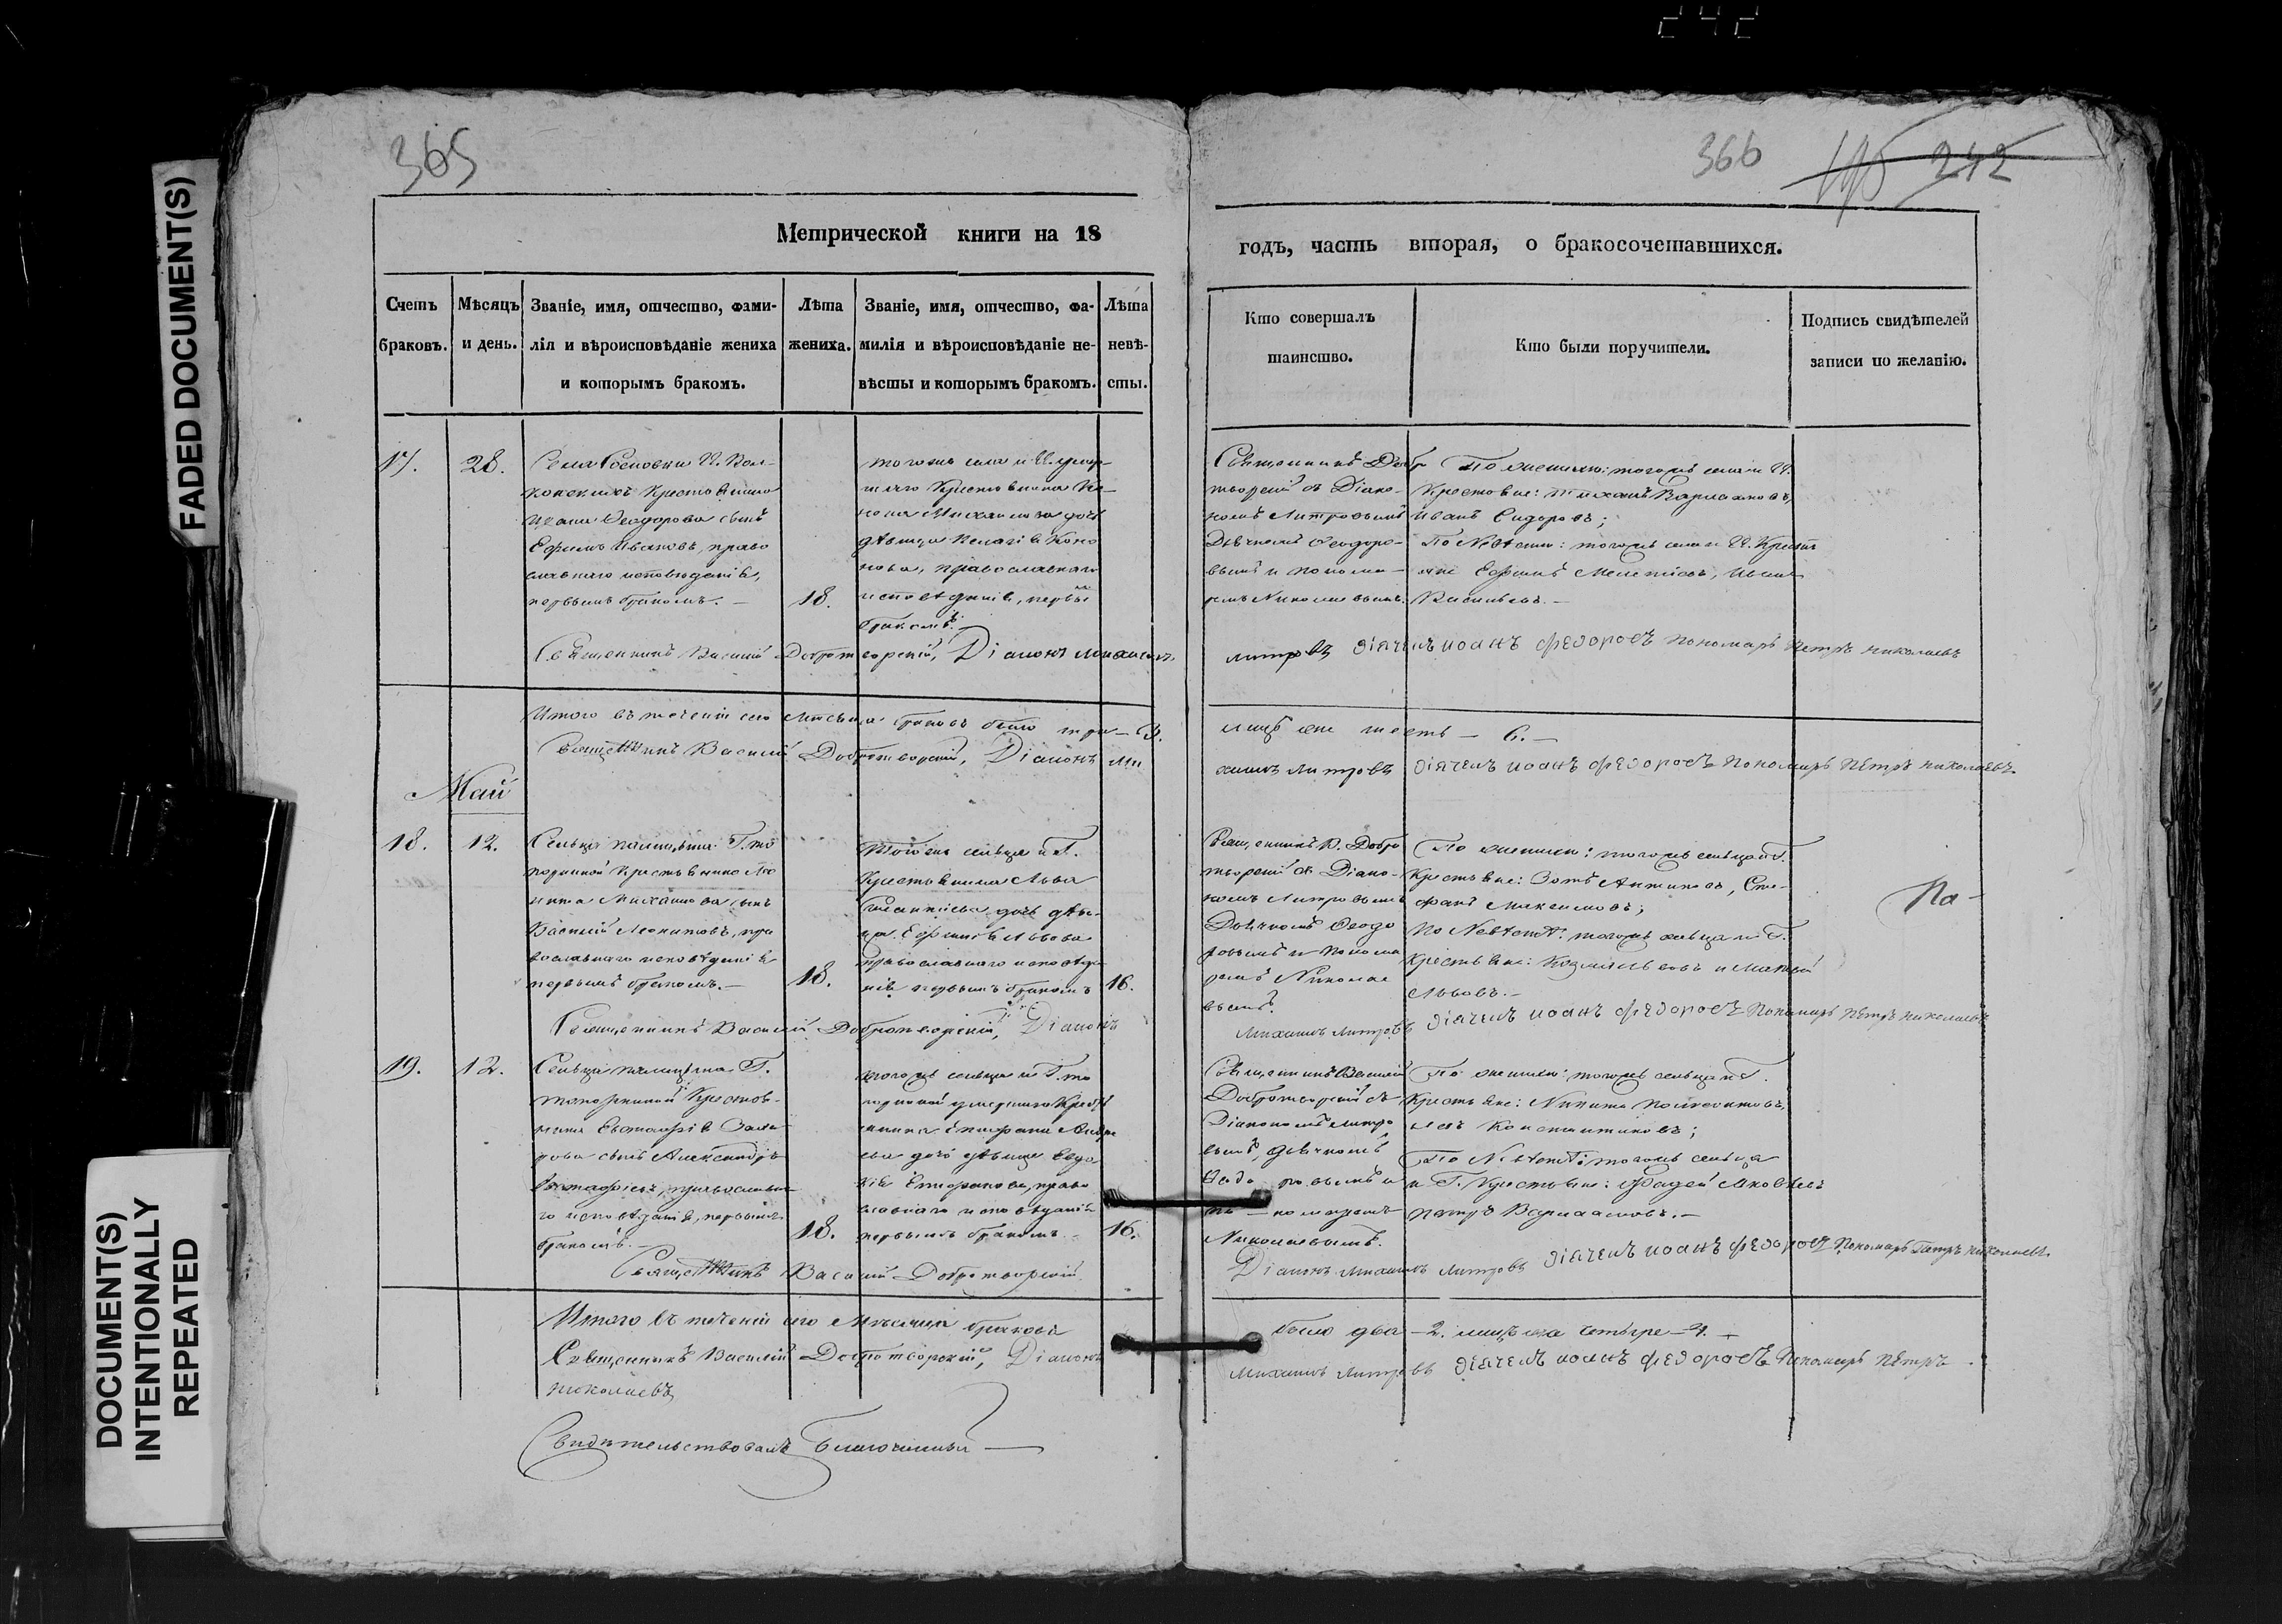 242
365
366
195 242
FADED DOCUMENT(S)
DOCUMENT(S)
INTENTIONALLY
REPEATED
Метрической книги на 18
годъ, часть вторая, о бракосочетавшихся.
Счетъ
браковъ.
Мѣсяцъ
и день.
Званіе, имя, отчество, фами-
лія и вѣроисповѣданіе жениха
и которымъ бракомъ.
Лѣта
жениха.
Званіе, имя, отчество, фа-
милія и вѣроисповѣданіе не-
вѣсты и которымъ бракомъ.
Лѣта
невѣ-
сты.
Кто совершалъ
таинство.
Кто были поручители.
Подпись свидѣтелей
записи по желанію.
17.
28.
Села
Крестьянина
Ивана Ѳеодорова сынъ
Ефимъ Ивановъ, право
славнаго исповѣданія,
первымъ бракомъ. –
18.
тогожъ села и
шаго Крестьянина Ко-
нона Михайлова дочь
дѣвица Пелагія Коно
нова, православнаго
исповѣданія, первы
бракомъ.
Священникъ Добр
творскій съ Діако-
номъ Митровымъ
Дьячкомъ Ѳеодоро-
вымъ и понома-
ремъ Николаевымъ.
По женихѣ: тогожъ села и
Крестьяне: Варлаамовъ,
Иванъ Сидоровъ;
По Невѣстѣ: тогожъ села и Крестья
не Ефимъ Мелетіевъ,
Васильевъ. –
Священникъ Василій Добротворскій, Діаконъ Михаилъ
Митровъ дїячекъ иоанъ федоровъ пономарь Петръ николаевъ
Итого въ теченіи сего мѣсяца браковъ было три – 3.
лицъ же шесть – 6. –
Священникъ Василій Добротворскій, Діаконъ Ми
хаилъ Митровъ дїячекъ иоанъ федоровъ Пономарь Петръ николаевъ
Май
18.
12.
Сельца Г. то
порниной Крестьянина Лео
нтія Михайлова сынъ
Василій Леонтьевъ, пра
вославнаго исповѣданія
первымъ бракомъ. –
18.
Тогожъ сельца и Г.
Крестьянина Льва
дочь дѣви-
ца Ефимія Львова
православнаго исповѣда
нія первымъ бракомъ
16.
Священникъ В. Добро
творскій съ Діако-
номъ Митровымъ
Дьячкомъ Ѳеодо
ровымъ и понома
ремъ Николае
вымъ.
По женихѣ: тогожъ сельца и Г.
Крестьяне: Зотъ Антиповъ, Сте-
фанъ Максимовъ;
По Невѣстѣ: тогожъ сельца и Г.
Крестьяне: Козма Львовъ и Матвей
Львовъ. –
На-
Священникъ Василій Добротворскій, Діаконъ
Михаилъ Митровъ дїячекъ иоанъ федоровъ Пономарь Петръ николаевъ
19.
12.
Сельца Г.
топорниной Крестьян-
нина Евстафія Заха-
рова сынъ Александръ
Евстафіевъ, православна-
го исповѣданія, первымъ
бракомъ. –
18.
тогожъ сельца и Г. то
порниной умершаго Кресть
янина Стефана Андре
ева дочь дѣвица Евдо-
кія Стефанова, право
славнаго исповѣданія
первымъ бракомъ. –
16.
Священникъ Василій
Добротворскій съ
Діакономъ Митро
вымъ, дьячкомъ
Ѳеодоровымъ и
по – номаремъ
Николаевымъ.
По женихѣ: тогожъ сельца и Г.
Крестьяне: Никита
Константиновъ;
По Невѣстѣ: тогожъ сельца
и Г. Крестьяне: Фадей Яковлевъ
Петръ Варлаамовъ. –
Священникъ Василій Добротворскій
Діаконъ Михаилъ Митровъ дїячекъ иоанъ федоровъ Пономарь Петръ николаевъ
Итого въ теченіи сего Мѣсяца браковъ
было два – 2. лицъ же четыре – 4. –
Священникъ Василій Добротворскій, Діаконъ
Михаилъ Митровъ дїячекъ иоанъ федоровъ Пономарь Петръ
николаевъ
Свидѣтельствовалъ Благочинный –